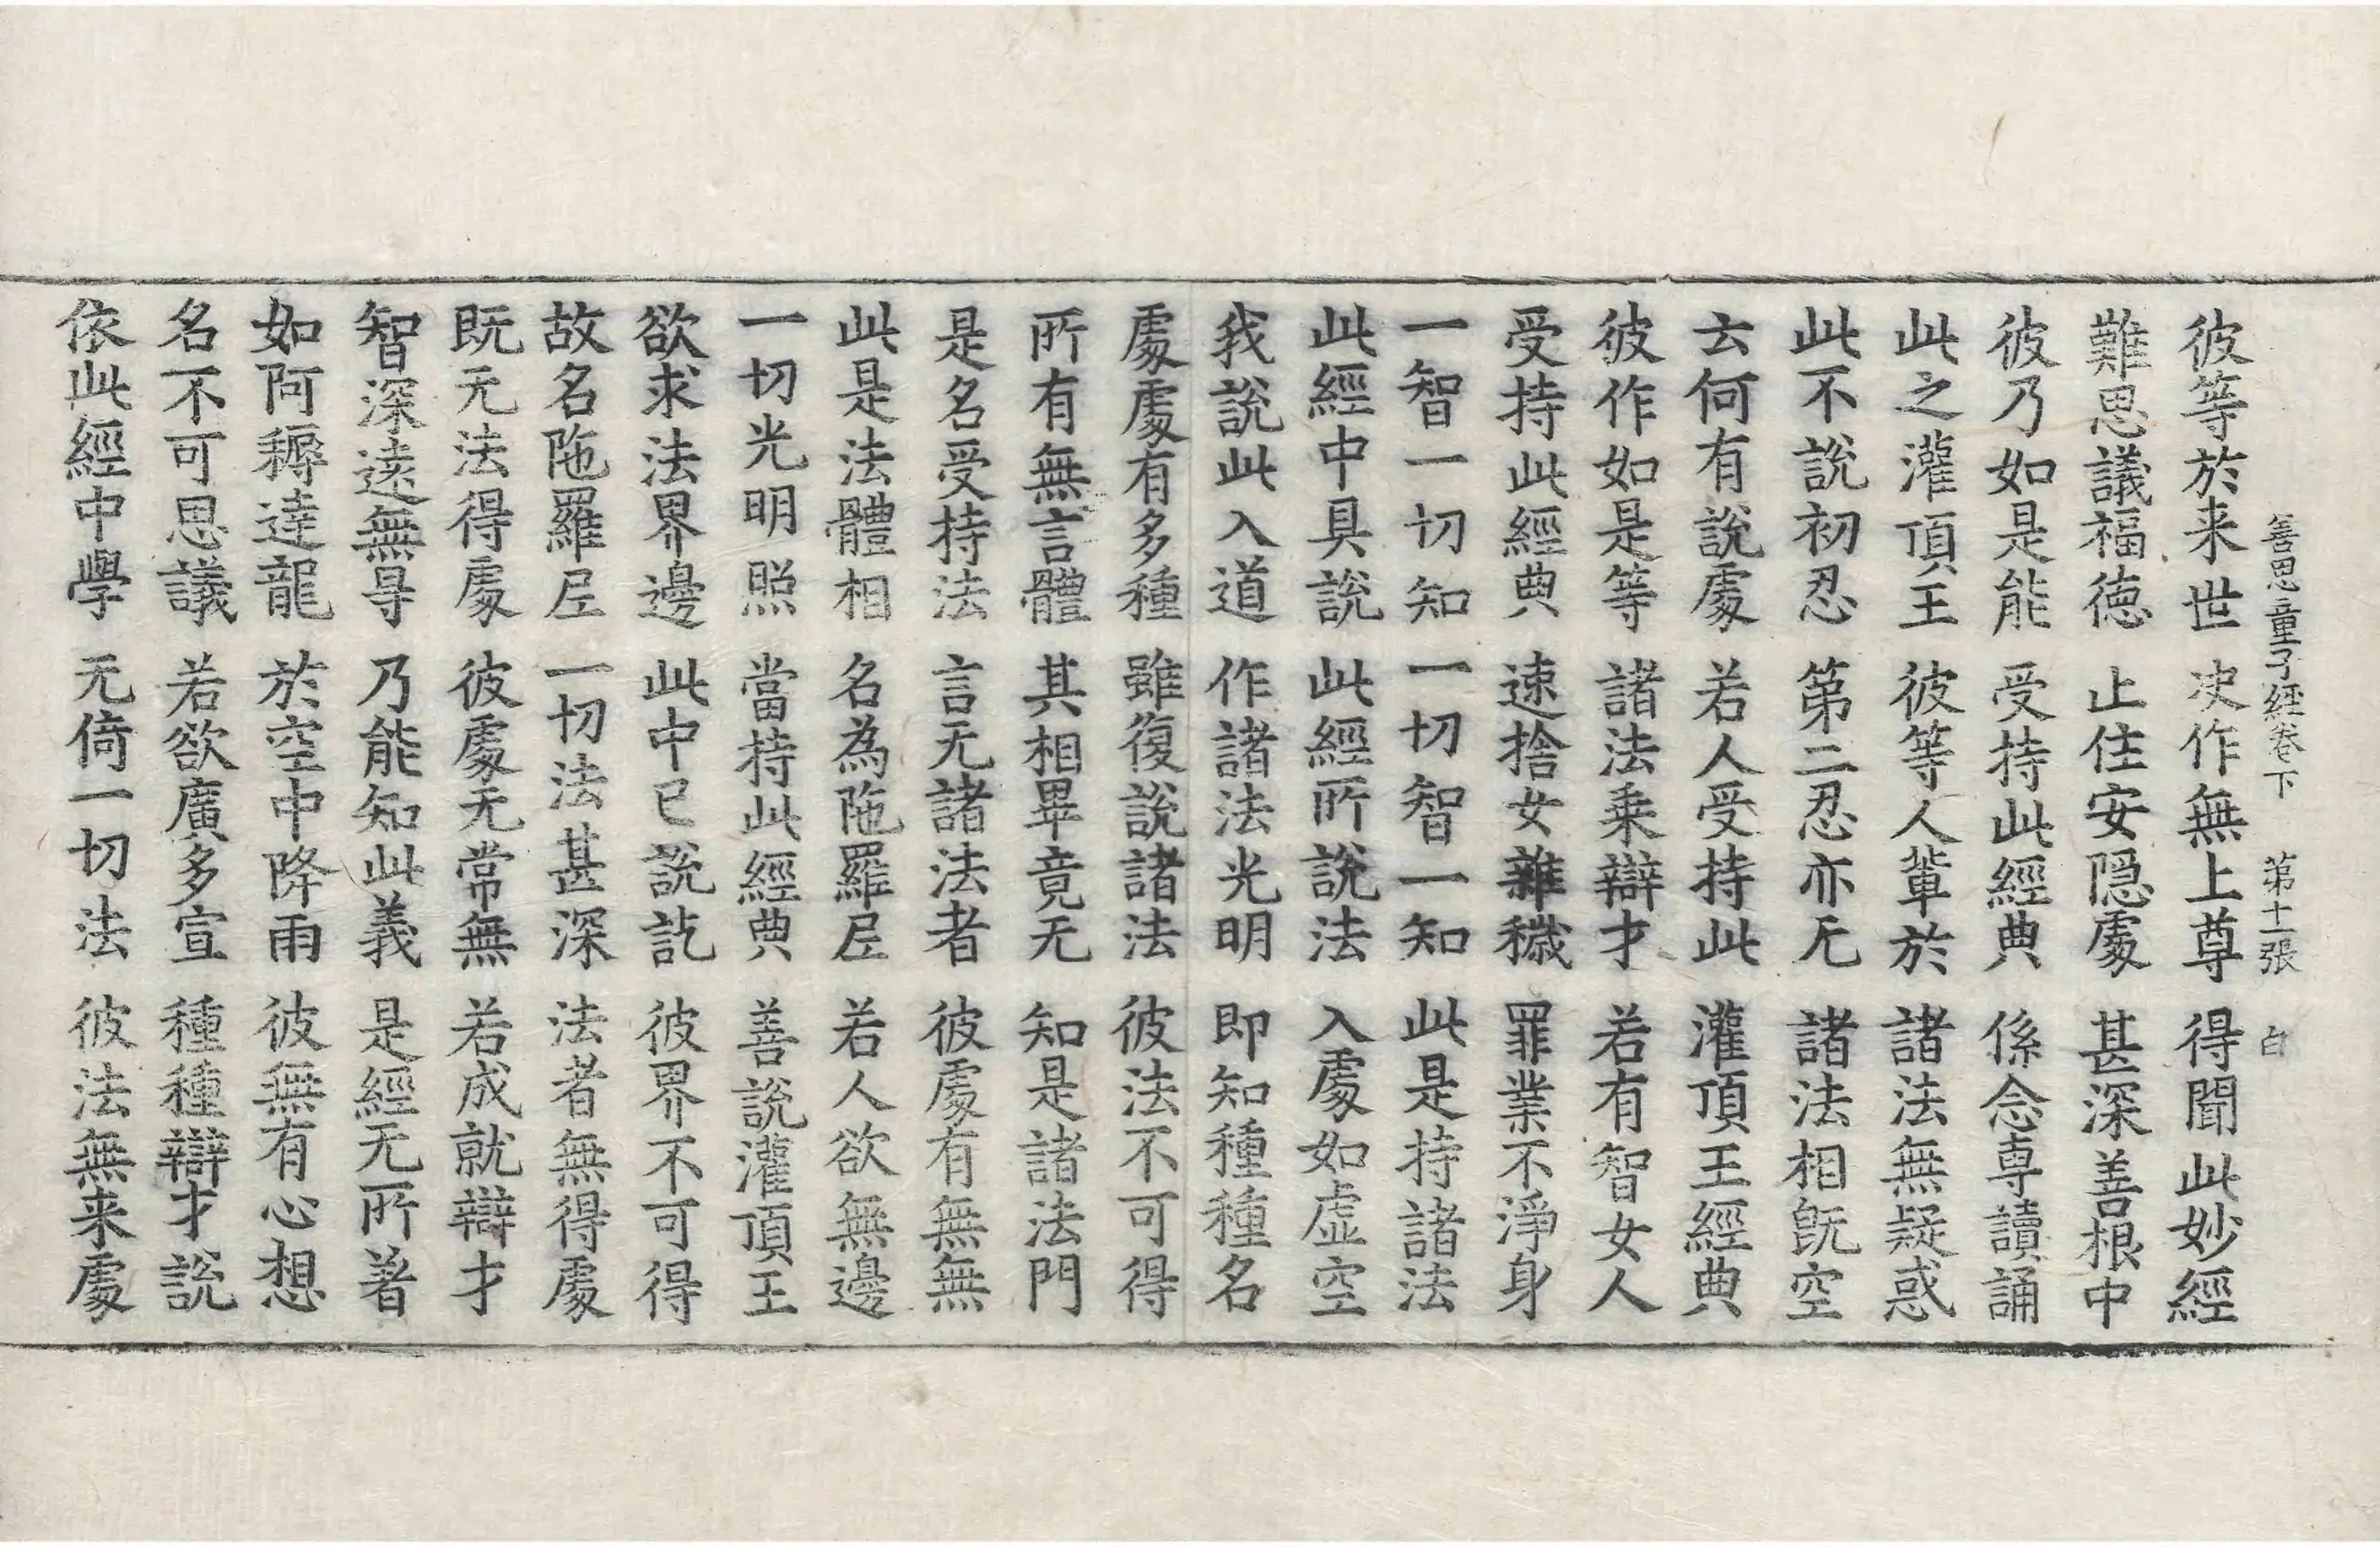 善思童子經卷下　第十一張　白
彼等於来世　决作無上尊　得聞此妙經
難思議福德　止住安隱處　甚深善根中
彼乃如是能　受持此經典　係念專讀誦
此之灌頂王　彼等人輩於　諸法無疑惑
此不說初忍　第二忍亦无　諸法相旣空
云何有說處　若人受持此　灌頂王經典
彼作如是等　諸法乗辯才　若有智女人
受持此經典　速捨女雜穢　罪業不淨身
一智一切知　一切智一知　此是持諸法
此經中具說　此經所說法　入處如虛空
我說此入道　作諸法光明　即知種種名
處處有多種　雖復說諸法　彼法不可得
所有無言體　其相畢竟无　知是諸法門
是名受持法　言无諸法者　彼處有無無
此是法體相　名為陁羅尼　若人欲無邊
一切光明照　當持此經典　善說灌頂王
欲求法界邊　此中已說訖　彼界不可得
故名陁羅尼　一切法甚深　法者無得處
既无法得處　彼處无常無　若成就辯才
智深遠無㝵　乃能知此義　是經无所著
如阿耨達龍　於空中降雨　彼無有心想
名不可思議　若欲廣多宣　種種辯才說
依此經中學　无倚一切法　彼法無来處